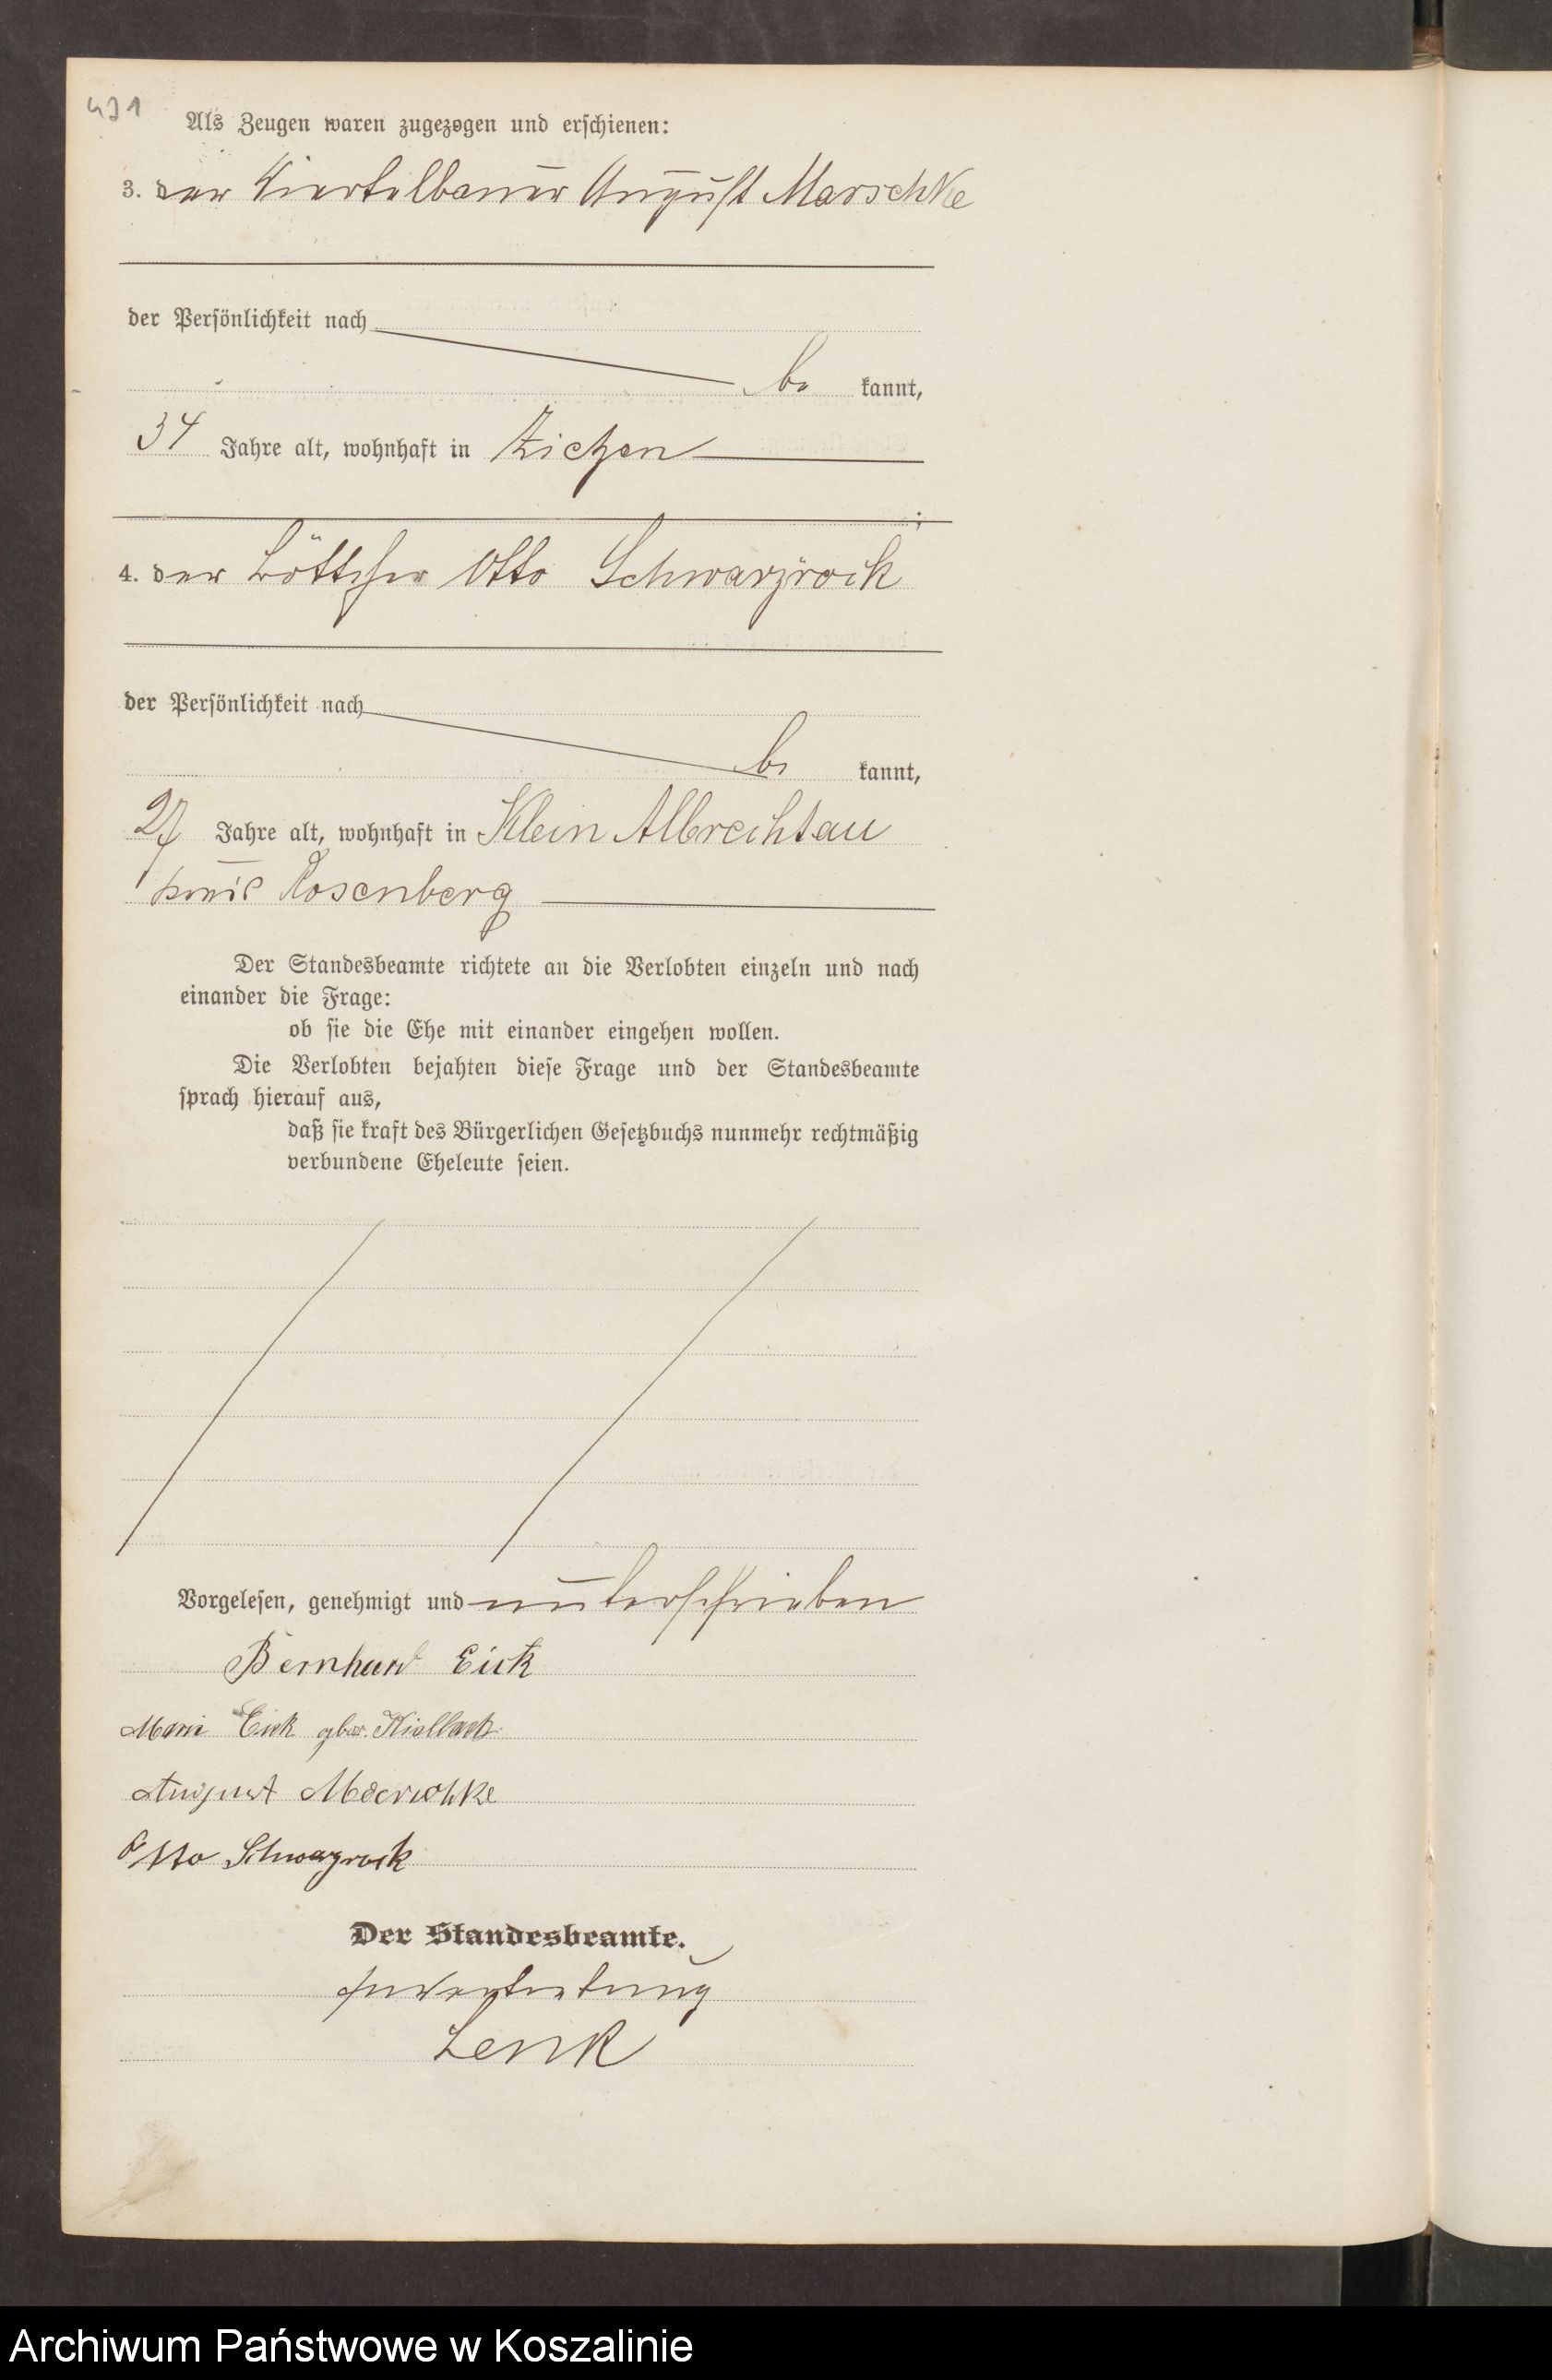 431
Als Zeugen waren zugezogen und erschienen:
3. der Viertelbauer August Marschke
der Persönlichkeit nach
be kannt,
34 Jahre alt, wohnhaft in
4. der Böttcher Otto Schwarzrock
der Persönlichkeit nach
be kannt,
27 Jahre alt, wohnhaft in Klein Albrechtau
Kreis Rosenberg
Der Standesbeamte richtete an die Verlobten einzeln und nach
einander die Frage:
ob sie die Ehe mit einander eingehen wollen.
Die Verlobten bejahten diese Frage und der Standesbeamte
sprach hierauf aus,
daß sie kraft des Bürgerlichen Gesetzbuchs nunmehr rechtmäßig
verbundene Eheleute seien.
Vorgelesen, genehmigt und unterschrieben
Bernhard Eick
Marie Eick geb.
August Marschke
Otto Schwarzrock
Der Standesbeamte.
In Vertretung
Lenk
Archiwum Państwowe w Koszalinie